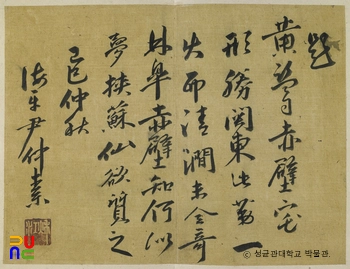 題
黃(
赤壁宅
形勝関東此第一
火而清澗未全奇
林皐赤壁知何似
夢挾蘇仙欲質之
乙巳仲秋
海平尹仲素
ⓒ 성균관대학교 박물관.